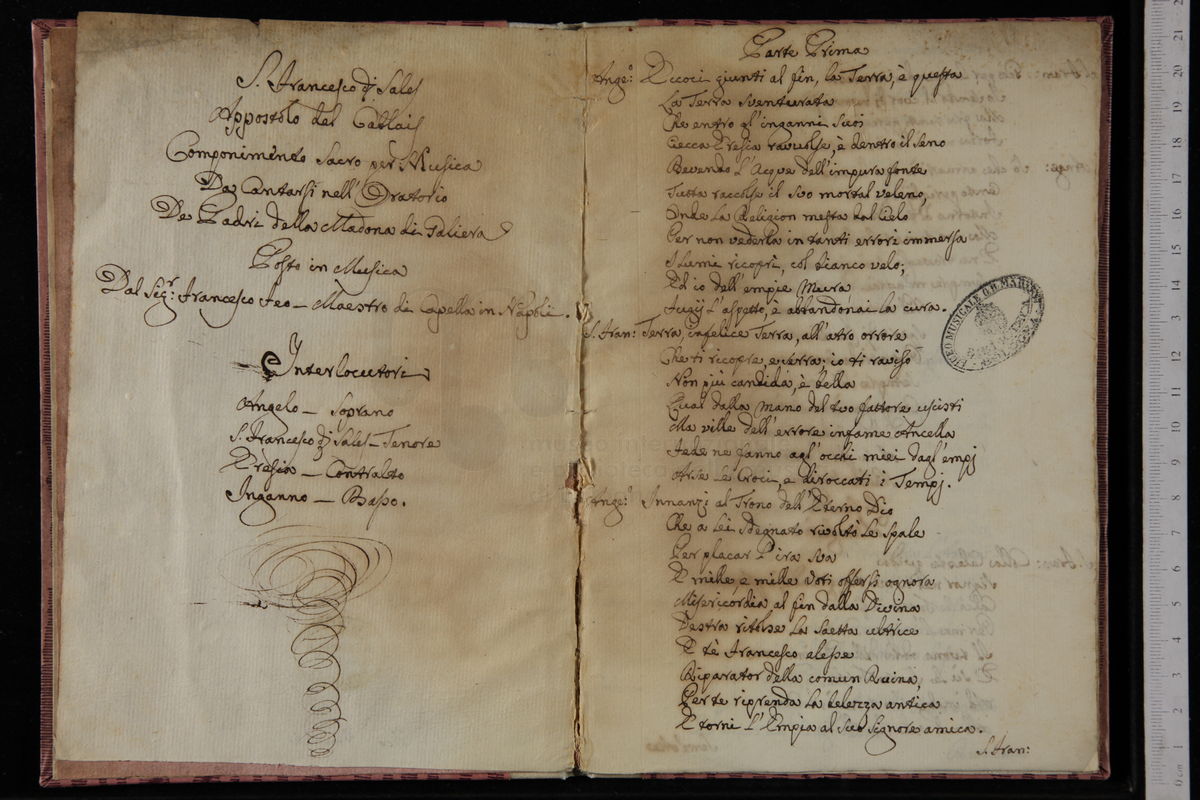 S. Francesco di Sales
Appostolo del Cablais
Componimento Sacro per Musica
Da Cantarsi nell' Oratorio
De Padri della Madona di Galiera
Posto in Musica
Dal Sigr. Francesco Feo — Maestro di Capella in Napoli.
Interlocutori
Angelo — Soprano
S. Francesco di Sales — Tenore
Eresia — Contralto
Inganno — Basso.
Parte Prima
Ange.o Eccoci giunti al fin, la Terra, è questa
La Terra sventurata
Che entro gl' inganni suoi
Cieca Eresia ravvolse, è dentro il seno
Bevendo l'Acque dell' impura fonte
Tutto raccolse il suo mortal veleno,
Onde la Religion mesta dal Cielo
Per non vederla in tanti errori immersa
I lumi ricoprì, col bianco velo;
Ed io dell' empie Mura
Fugij l'aspetto, è abbandonai la cura.
S. Fran: Terra, infelice Terra, all' atro orrore
Che ti ricopre, e serra; io ti raviso
Non più candida, è bella
Qual dalla mano del tuo fattore uscisti
Ma ville dell' errore infame Ancella
Fede ne fanno agl' occhi miei dagl' empj
Arse le Croci, e diroccati i Tempj.
Ange.o Innanzi al Trono dell' Eterno Dio
Che a lei sdegnato rivoltò le spale
Per placar l'ira sua
E mille, e mille voti offersi ognora
Misericordia al fin dalla Divina
Destra ritolse la saetta ultrice
E tè Francesco elesse
Riparator della comun Ruina,
Per te riprenda la belezza antica
E torni l'Empia al suo Signore amica.
S. Fran:
LICEO MUSICALE G.B. MARTINI